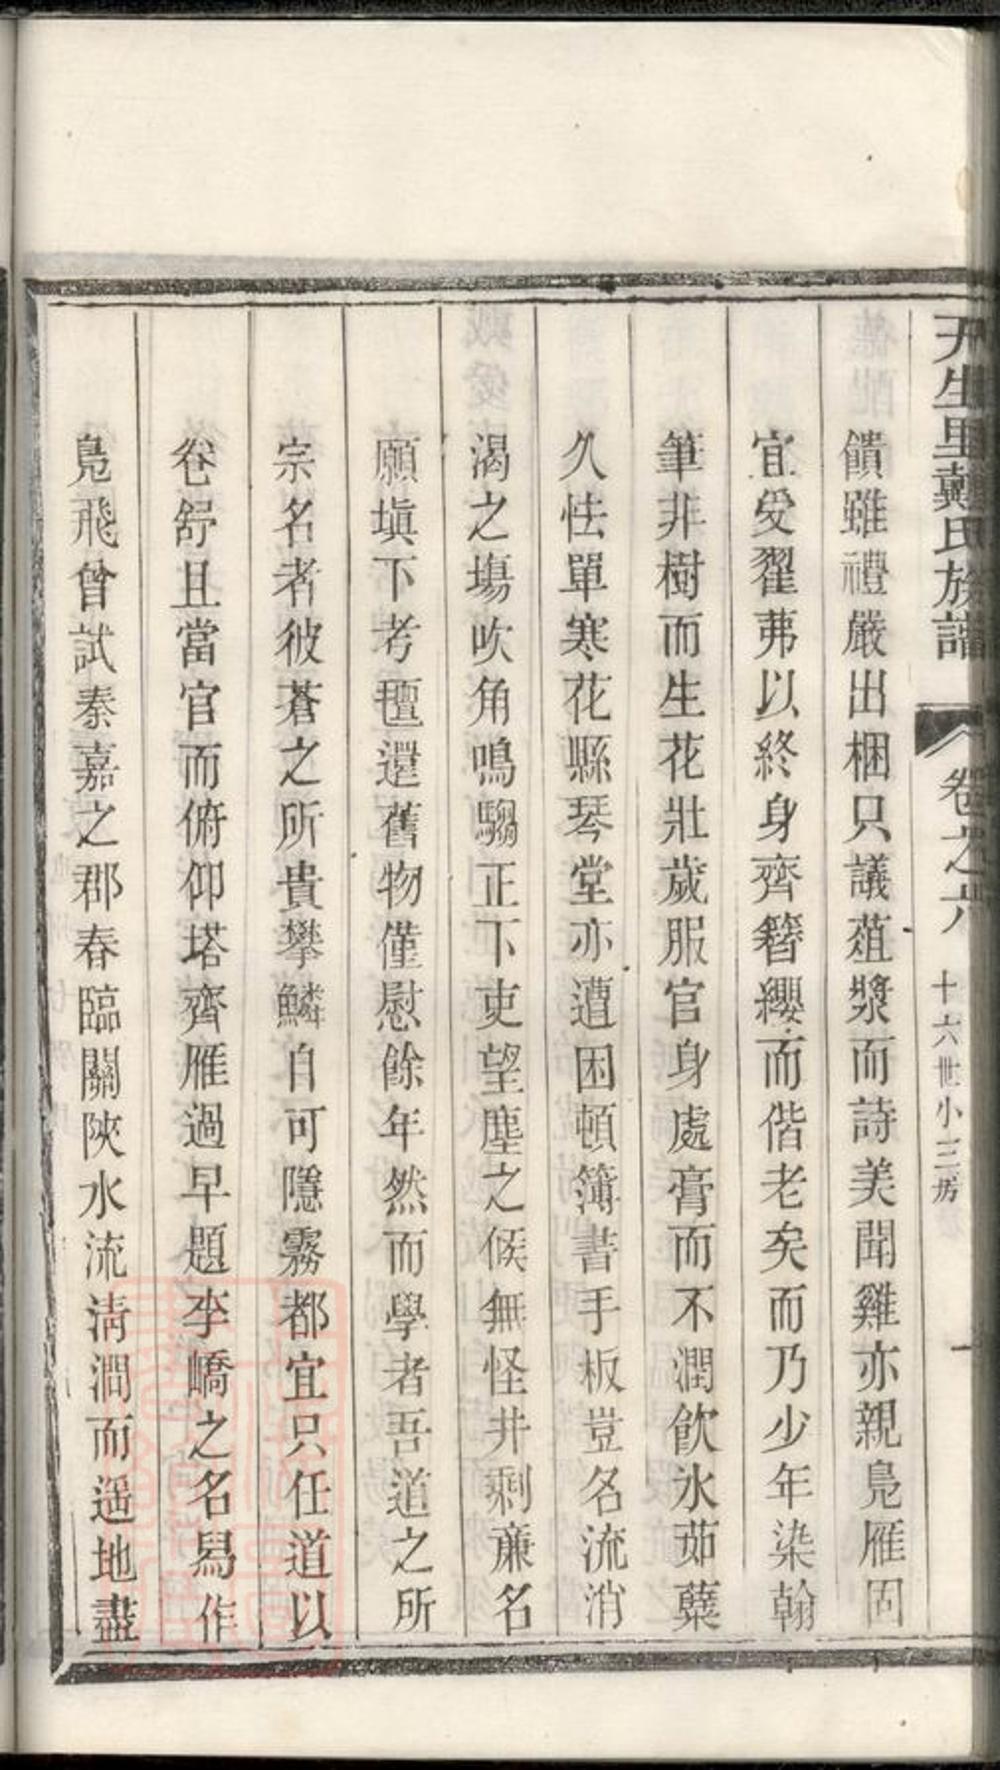 天生里戴氏族譜 卷之六 十六世小三房 一
饋雖禮嚴出梱只議葅漿而詩美聞雞亦親鳧雁固
宜爰翟茀以終身齊簪纓而偕老矣而乃少年染翰
筆非樹而生花壯歲服官身處膏而不潤飲氷茹蘗
久怯單寒花縣琴堂亦遭困頓簿書手板豈名流消
渴之塲吹角鳴騶正下吏望塵之候無怪井剩亷名
願塡下考氊還舊物僅慰餘年然而學者吾道之所
宗名者彼蒼之所貴攀鱗自可隱霧都宜只任道以
卷舒且當官而俯仰塔齊雁過早題李嶠之名舄作
鳧飛曾試秦嘉之郡春臨關陝水流淸澗而遥地盡